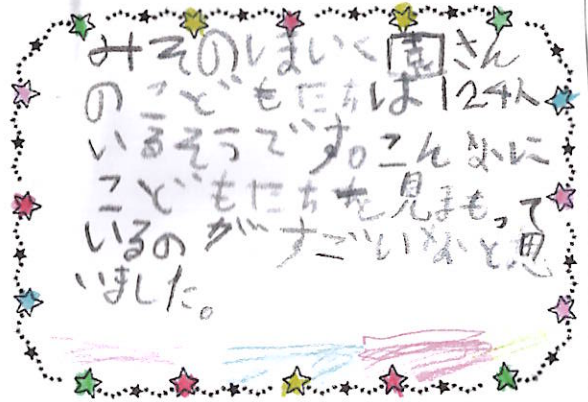 みそのほいく園さん
のこどもたちは124人
いるそうです。こんなに
こどもたちを見まもって
いるのがすごいなと思
いました。